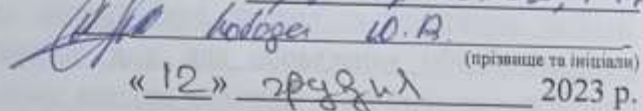 Ю.В.
(прізвище та ініціали)
«12» грудня 2023 р.